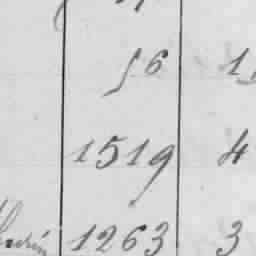 56 1
1519 4
1263 3